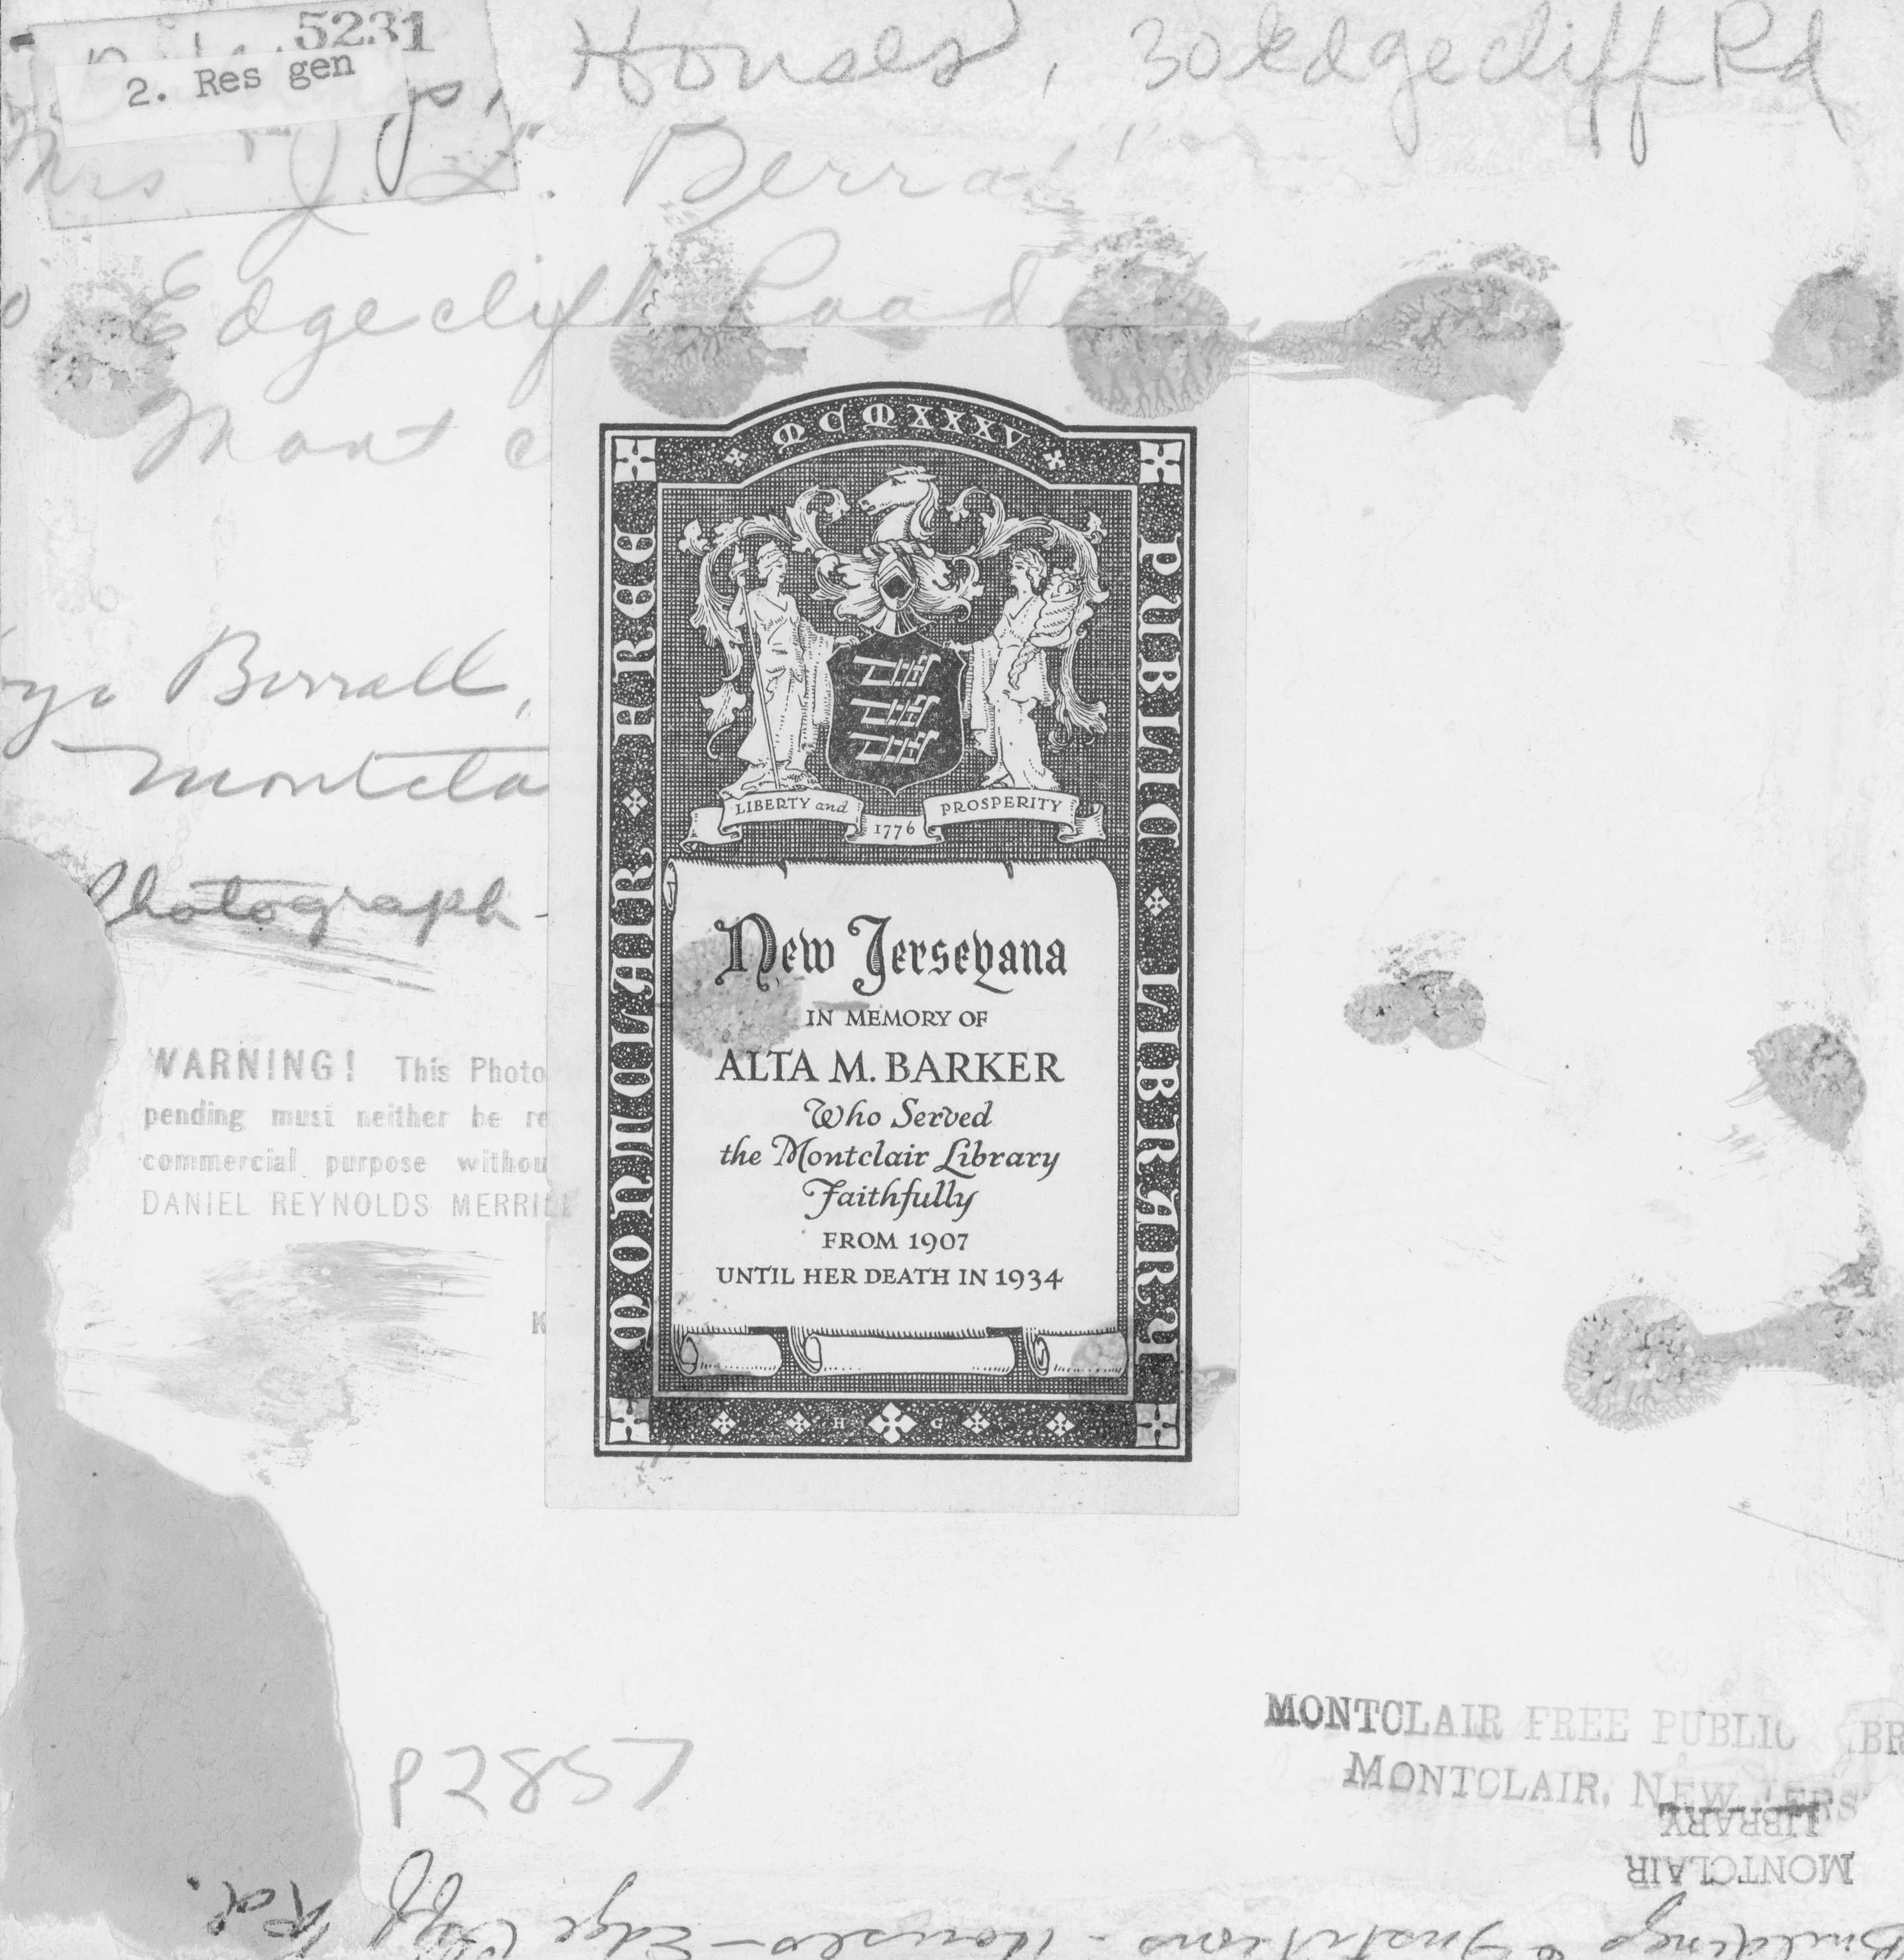 5231
2. Res gen
Houses, 30 Edgecliff Rd
Mrs J.
Edgecliff Road
Mont c
Berrall,
Montcla
Photograph
WARNING! This Photo
pending must neither be re
commercial purpose withou
DANIEL REYNOLDS MERRILL
K
MCMXXXV
MONTCLAIR FREE
PUBLIC LIBRARY
LIBERTY and
1776
PROSPERITY
New Jerseyana
IN MEMORY OF
ALTA M. BARKER
Who Served
the Montclair Library
Faithfully
FROM 1907
UNTIL HER DEATH IN 1934
H G
P2857
MONTCLAIR FREE PUBLIC
MONTCLAIR, NEW JERS
MONTCLAIR
LIBRARY
Buildings & Institutions - Houses - Edge Cliff Rd.